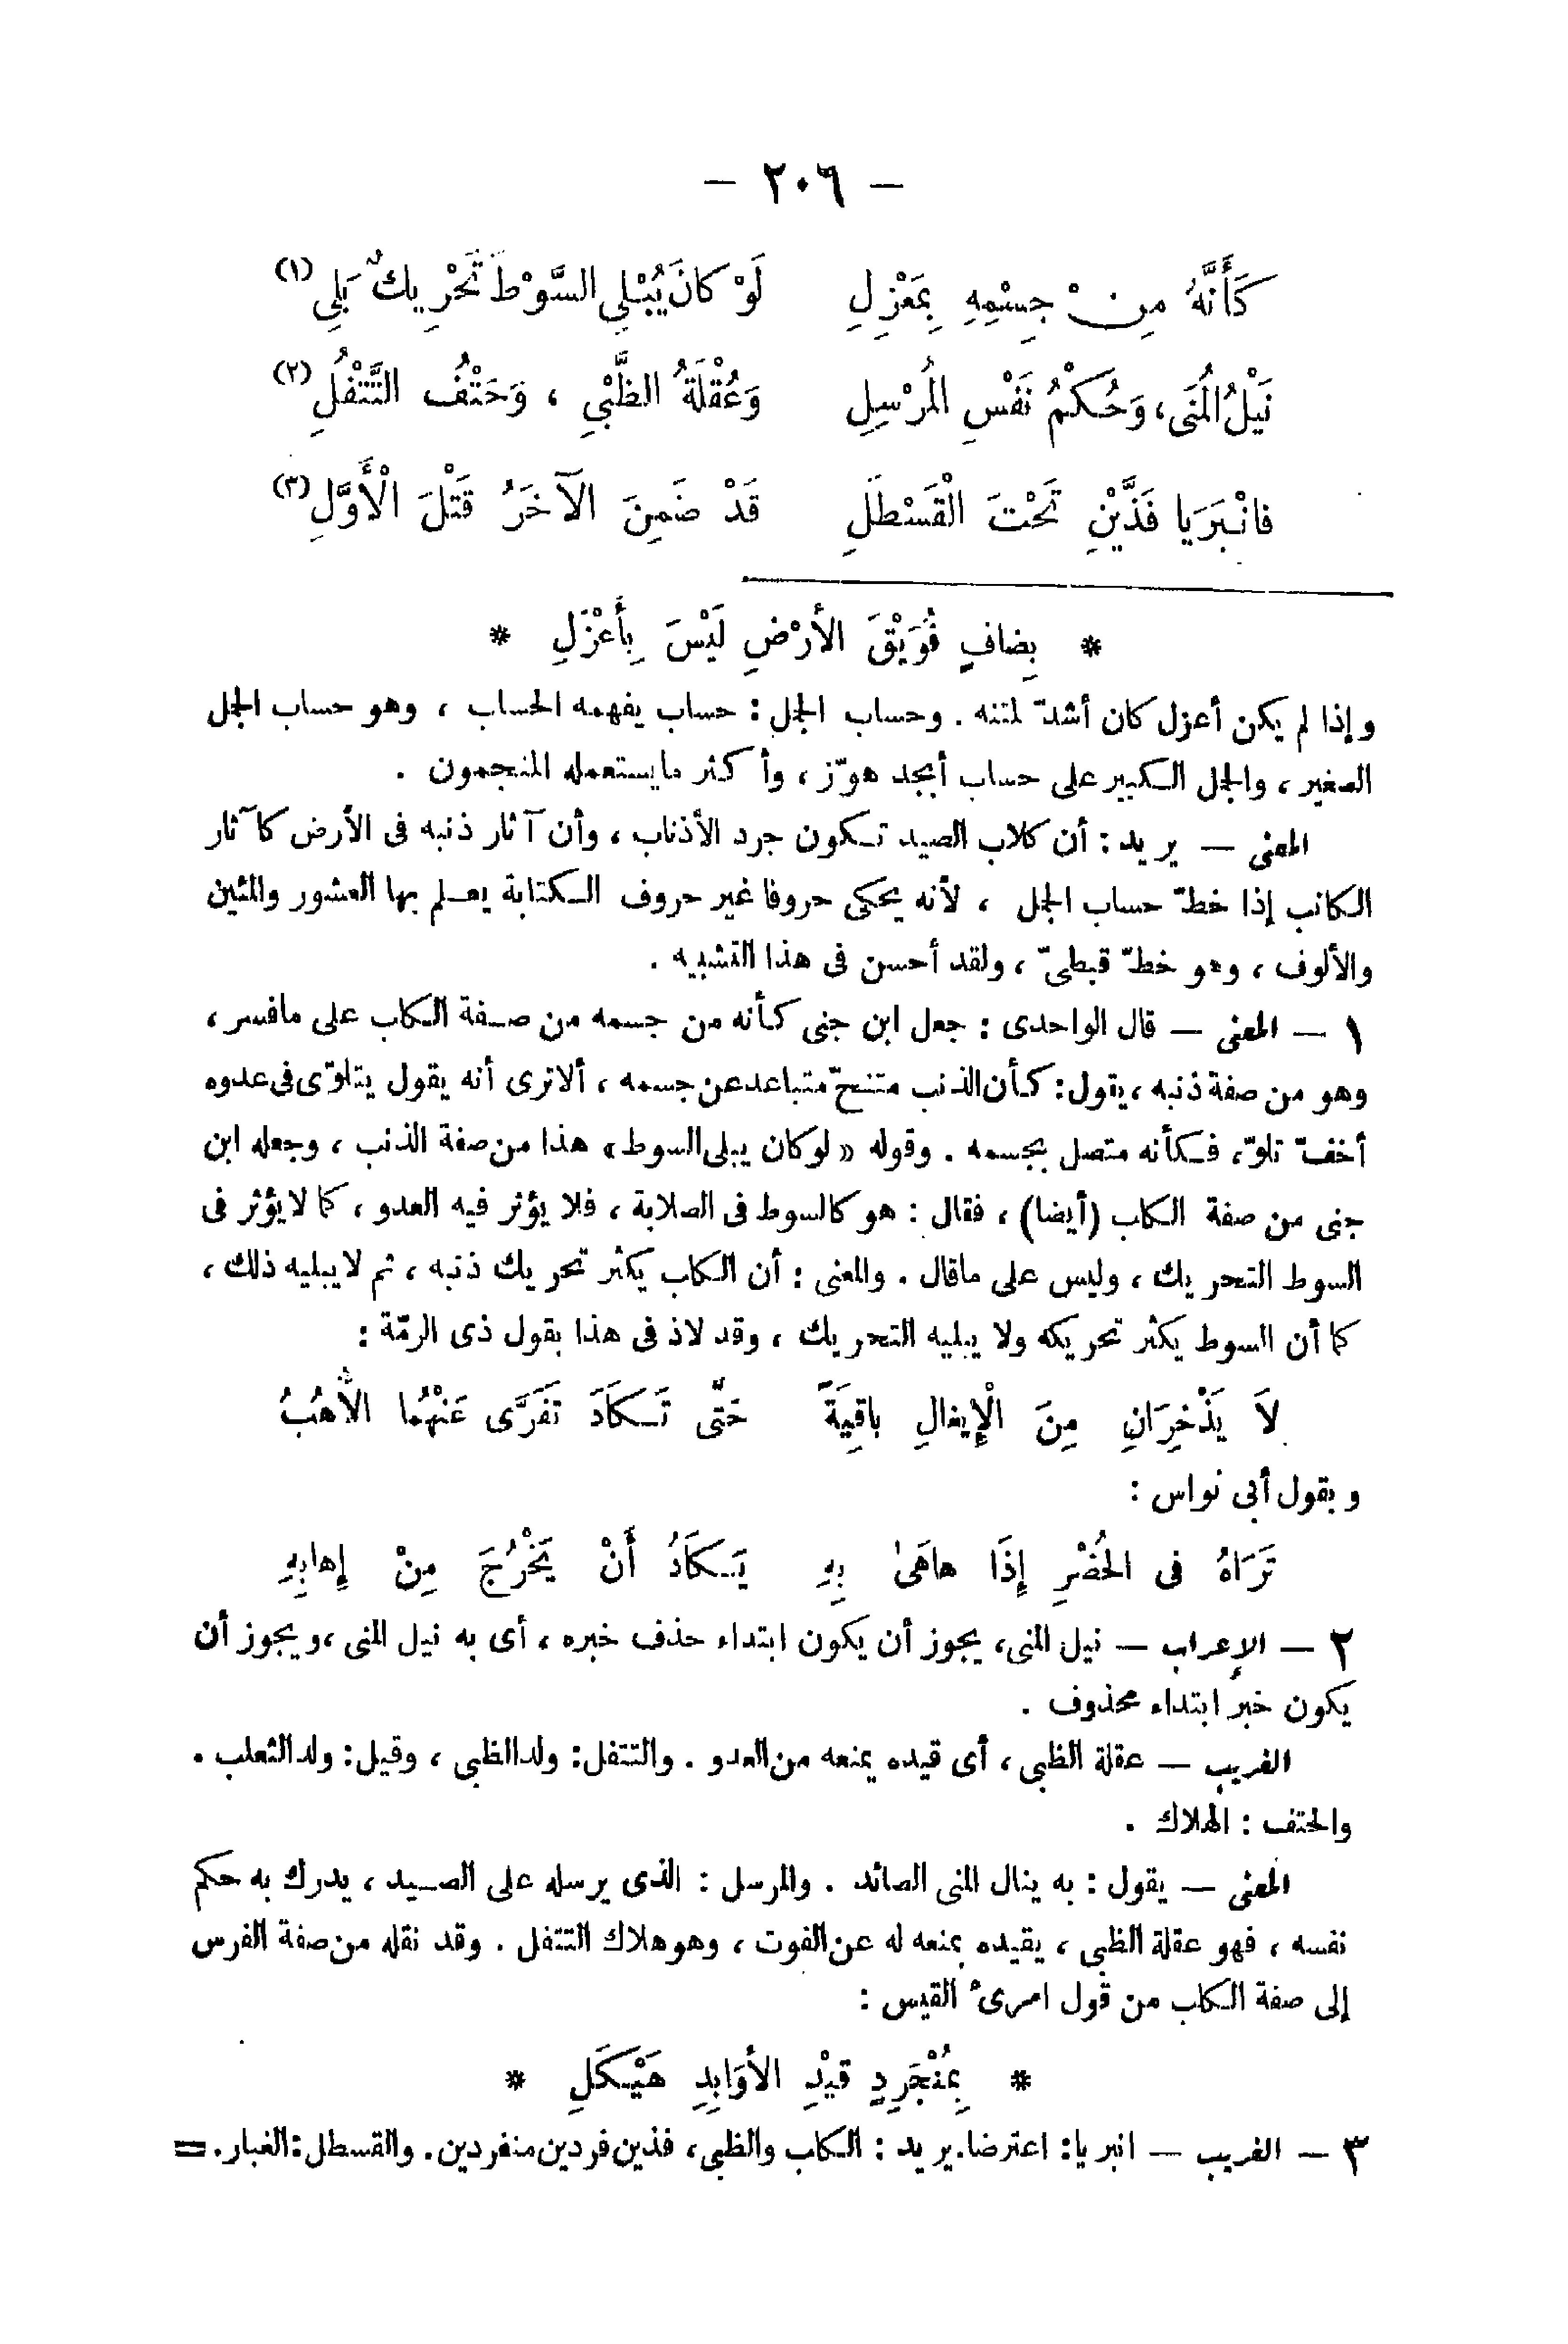 — ٢٠٦ —
كَأَنَّهُ مِنْ جِسْمِهِ بِمَعْزِلِ لَوْ كانَ يُبْلِي السَّوْطَ تَحْرِيكٌ بَلِي (١)
نَيْلُ الْمُنَى، وَحُكْمُ نَفْسِ الْمُرْسِلِ وَعُقْلَةُ الظَّبْيِ ، وَحَتْفُ التَّتْفُلِ (٢)
فانْبَرَيا فَذَّيْنِ تَحْتَ الْقَسْطَلِ قَدْ ضَمِنَ الآخَرُ قَتْلَ الْأَوَّلِ (٣)
* بِضافٍ فُوَيْقَ الأرْضِ لَيْسَ بِأَعْزَلِ *
وإذا لم يكن أعزل كان أشدّ لمتنه . وحساب الجمل : حساب يفهمه الحساب ، وهو حساب الجمل
الصغير ، والجمل الكبير على حساب أبجد هوّز ، وأكثر مايستعمله المنجمون .
المعنى — يريد : أن كلاب الصيد تكون جرد الأذناب ، وأن آثار ذنبه فى الأرض كآثار
الكاتب إذا خطّ حساب الجمل ، لأنه يحكى حروفا غير حروف الكتابة يعلم بها العشور والمئين
والألوف ، وهو خطّ قبطىّ ، ولقد أحسن فى هذا التشبيه .
١ — المعنى — قال الواحدى : جعل ابن جنى كأنه من جسمه من صفة الكلب على مافسر ،
وهو من صفة ذنبه ، يقول : كأن الذنب متنحّ متباعد عن جسمه ، ألاترى أنه يقول يتلوّى فى عدوه
أخفّ تلوّ، فكأنه متصل بجسمه . وقوله « لوكان يبلى السوط » هذا من صفة الذنب ، وجعله ابن
جنى من صفة الكلب (أيضا) ، فقال : هو كالسوط فى الصلابة ، فلا يؤثر فيه العدو ، كما لايؤثر فى
السوط التحريك ، وليس على ماقال . والمعنى : أن الكلب يكثر تحريك ذنبه ، ثم لايبليه ذلك ،
كما أن السوط يكثر تحريكه ولا يبليه التحريك ، وقد لاذ فى هذا بقول ذى الرمّة :
لاَ يَذْخِرَانِ مِنَ الْإيغالِ باقِيَةً حَتَّى تَكَادَ تَفَرَّى عَنْهُما الأُهُبُ
وبقول أبى نواس :
تَرَاهُ فى الحُضْرِ إذَا هاهَى بِهِ يَكَادُ أَنْ يَخْرُجَ مِنْ إهابِهِ
٢ — الإعراب — نيل المنى، يجوز أن يكون ابتداء حذف خبره ، أى به نيل المنى ،ويجوز أن
يكون خبر ابتداء محذوف .
الغريب — عقلة الظبى ، أى قيده يمنعه من العدو . والتتفل : ولد الظبى ، وقيل : ولد الثعلب .
والحتف : الهلاك .
المعنى — يقول : به ينال المنى الصائد . والمرسل : الذى يرسله على الصيد ، يدرك به حكم
نفسه ، فهو عقلة الظبى ، يقيده يمنعه له عن الفوت ، وهو هلاك التتفل . وقد نقله من صفة الفرس
إلى صفة الكلب من قول امرئ القيس :
* بِمُنْجَرِدٍ قيْدِ الأوَابِدِ هَيْكَلِ *
٣ — الغريب — انبريا : اعترضا. يريد : الكلب والظبى، فذين فردين منفردين. والقسطل : الغبار. =